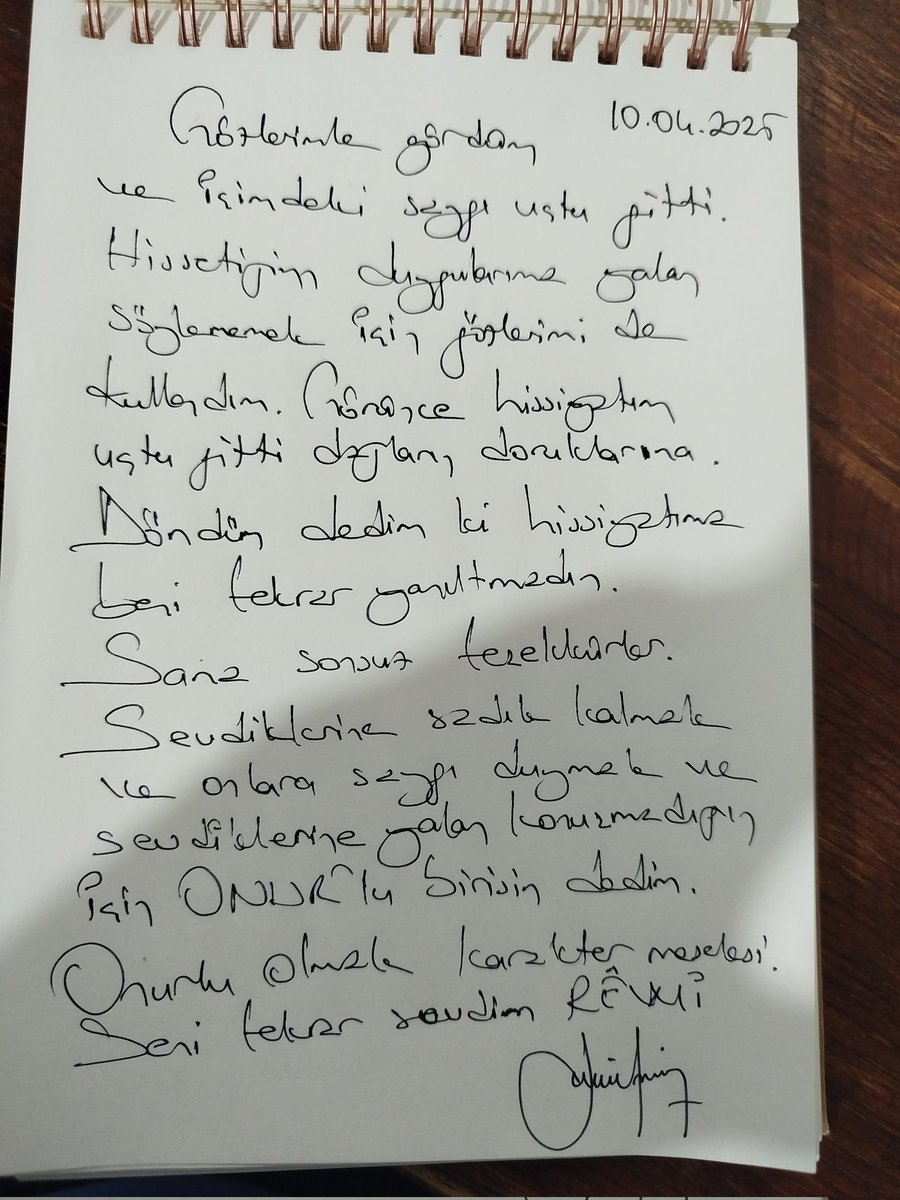 10.04.2025
Gözlerimle gördüm
ve içimdeki saygı uçtu gitti.
Hissetiğim duygularıma yalan
söylememek için gözlerimi de
kullandım. Görünce hissiyatım
uçtu gitti dağların doruklarına.
Döndüm dedim ki hissiyatıma
beni tekrar yanıltmadın.
Sana sonsuz teşekkürler.
Sevdiklerine sadık kalmak
ve onlara saygı duymak ve
sevdiklerine yalan konuşmadığın
için ONUR'lu birisin dedim.
Onurlu olmak karakter meselesi.
Seni tekrar sevdim